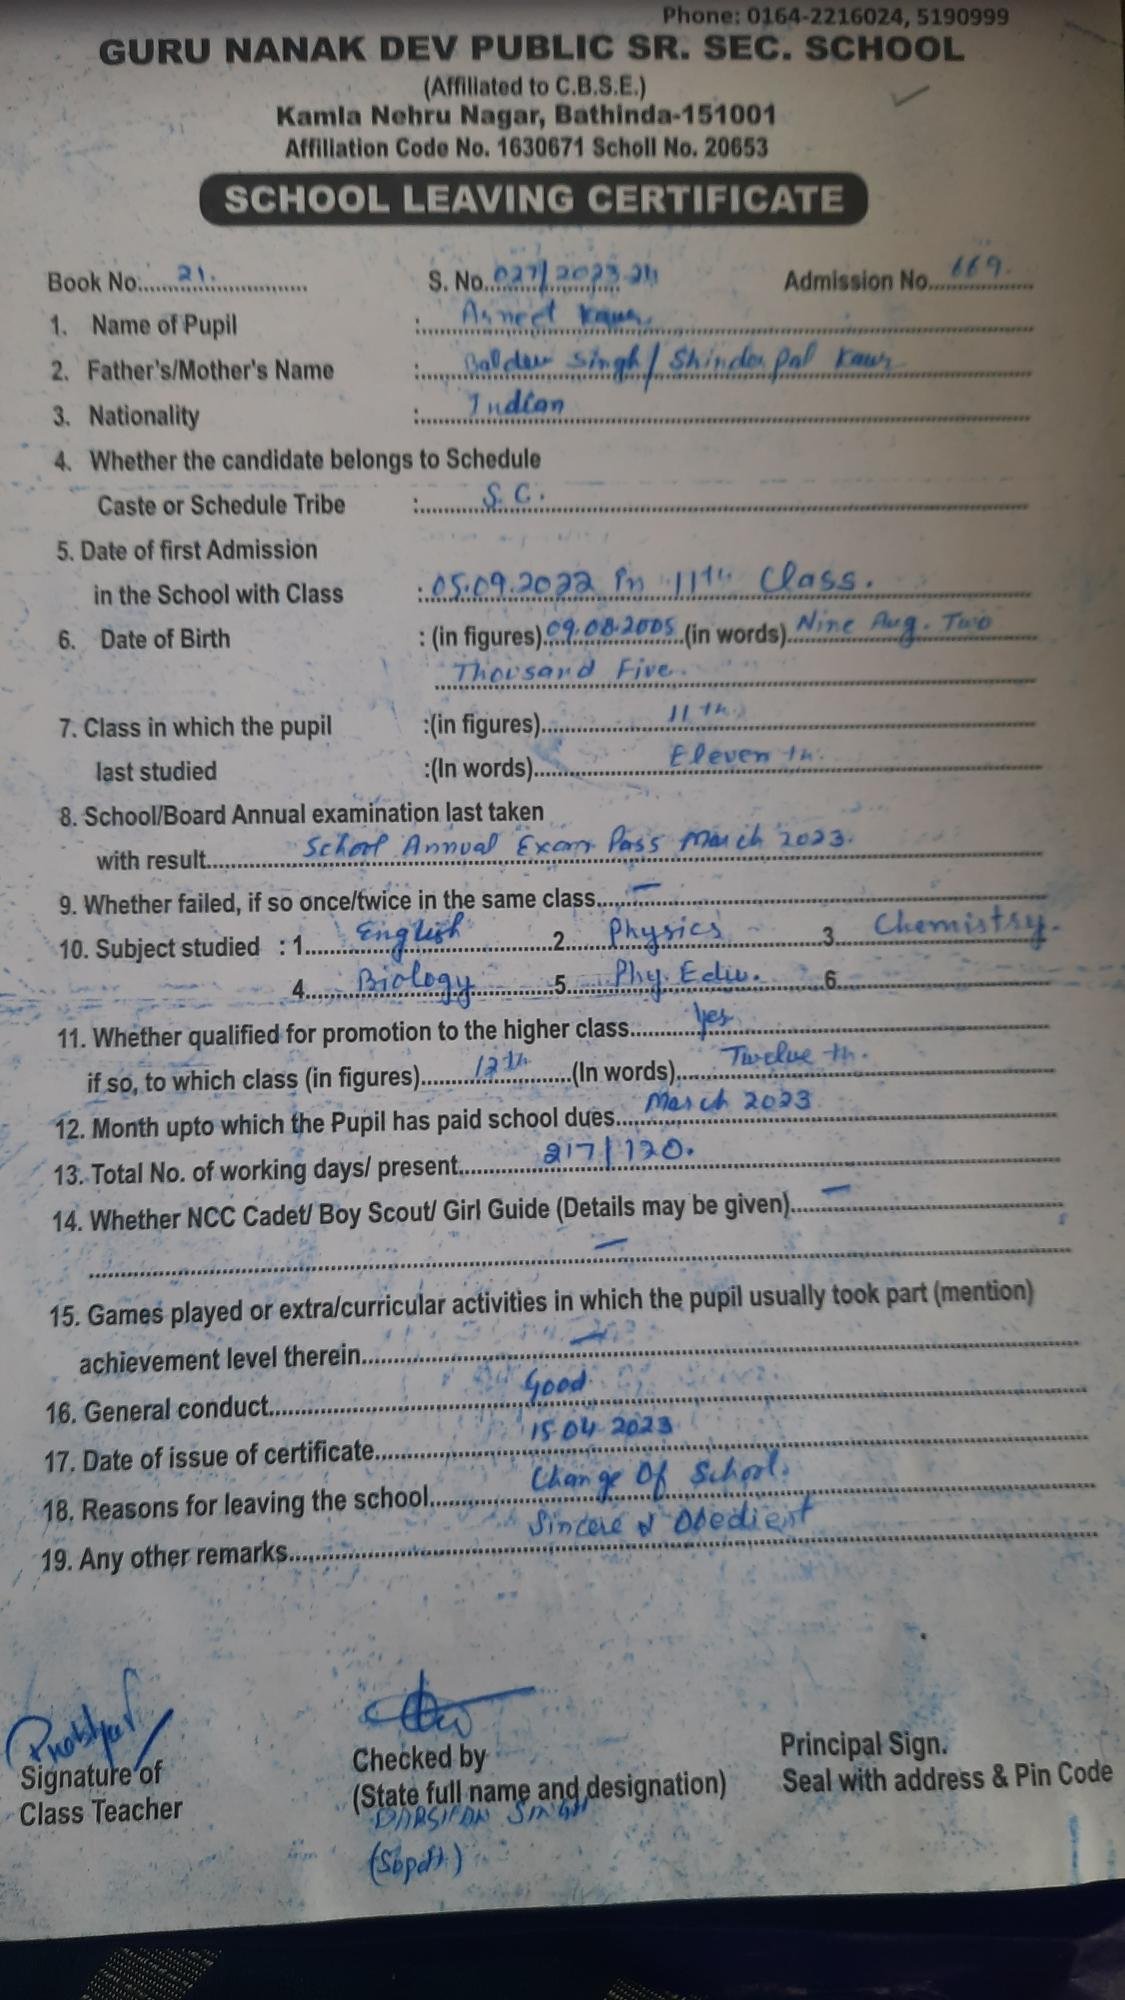 Phone: 0164-2216024, 5190999
GURU NANAK DEV PUBLIC SR. SEC. SCHOOL
(Affiliated to C.B.S.E.)
Kamla Nehru Nagar, Bathinda-151001
Affiliation Code No. 1630671 Scholl No. 20653
SCHOOL LEAVING CERTIFICATE
Book No. 21. S. No. 027/2023-24 Admission No. 669.
1. Name of Pupil : Asmeet Kaur.
2. Father's/Mother's Name : Baldev Singh/Shinderpal Kaur
3. Nationality : Indian
4. Whether the candidate belongs to Schedule
Caste or Schedule Tribe : S.C.
5. Date of first Admission
in the School with Class : 05.09.2022 in 11th Class.
6. Date of Birth : (in figures) 09.08.2005 (in words) Nine Aug. Two
Thousand Five.
7. Class in which the pupil :(in figures) 11th
last studied :(In words) Eleventh.
8. School/Board Annual examination last taken
with result School Annual Exam Pass March 2023.
9. Whether failed, if so once/twice in the same class —
10. Subject studied : 1. English 2. Physics 3. Chemistry.
4. Biology 5. Phy. Edu. 6.
11. Whether qualified for promotion to the higher class yes
if so, to which class (in figures) 12th (In words) Twelveth.
12. Month upto which the Pupil has paid school dues March 2023
13. Total No. of working days/ present 217/120.
14. Whether NCC Cadet/ Boy Scout/ Girl Guide (Details may be given) —
—
15. Games played or extra/curricular activities in which the pupil usually took part (mention)
achievement level therein —
16. General conduct Good
17. Date of issue of certificate 15.04.2023
18. Reasons for leaving the school Change Of School.
19. Any other remarks Sincere & Obedient
Signature of
Class Teacher
Checked by
(State full name and designation)
Singh
(Sbpdt.)
Principal Sign.
Seal with address & Pin Code